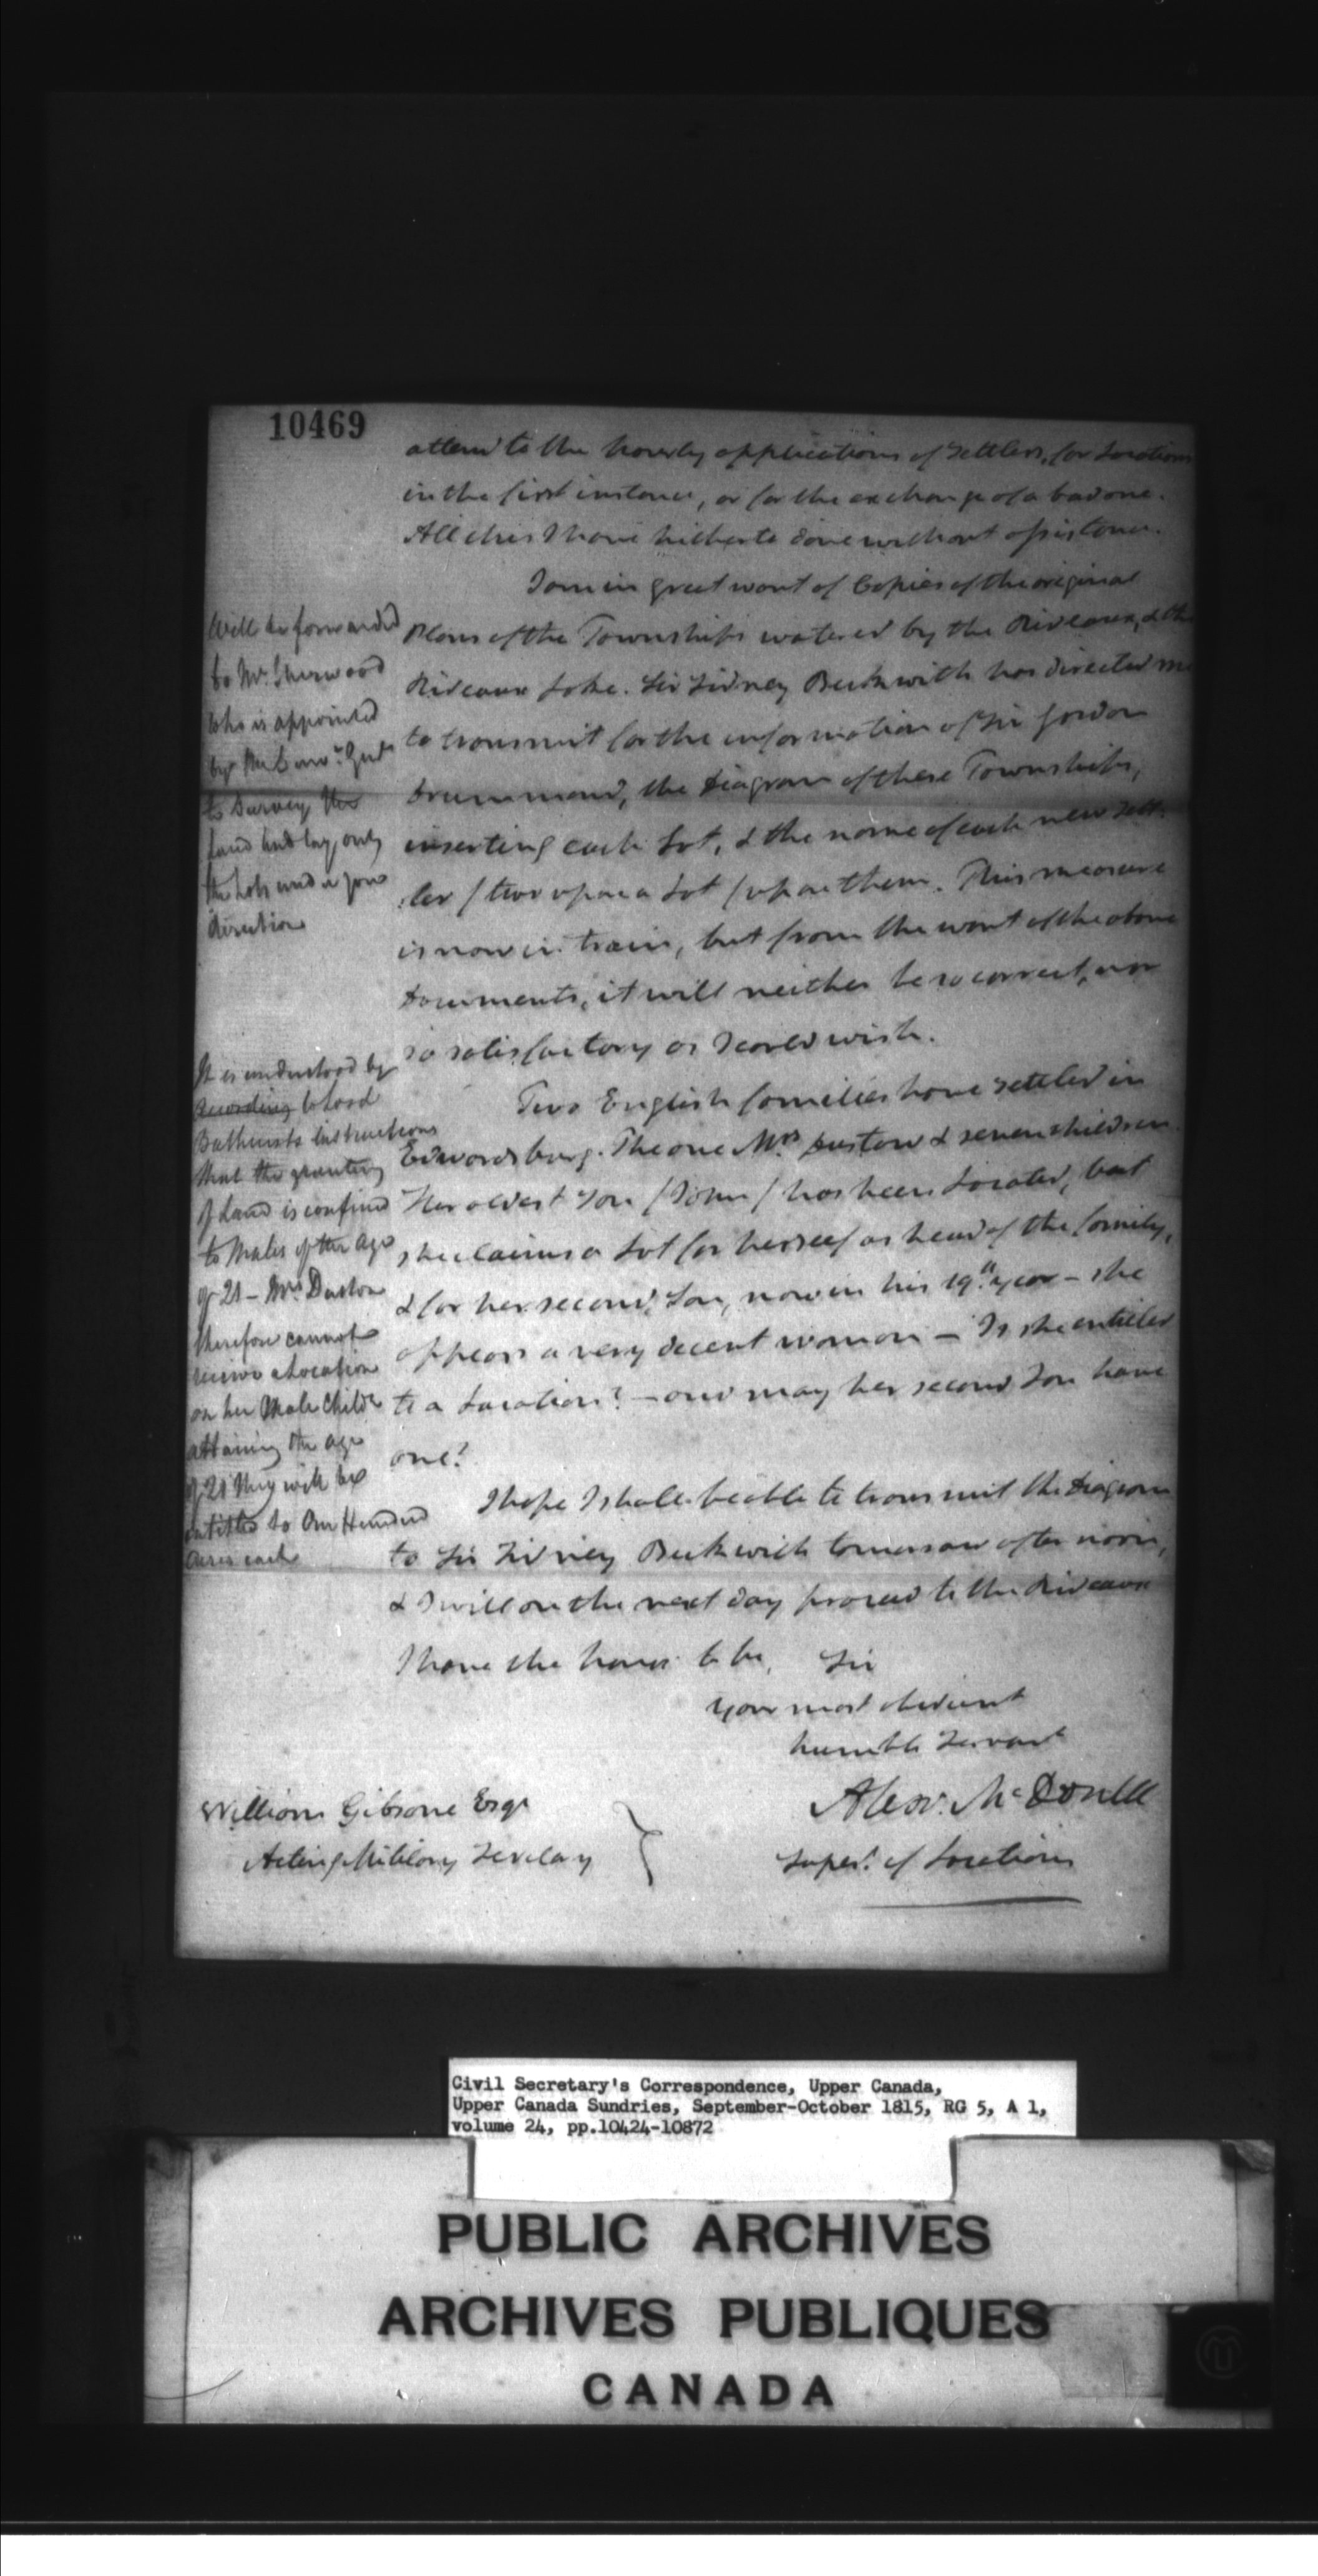 10469
attend to the hourly applications of Settlers, for Locations
in the first instance, or for the exchange of a bad one.
All this I have hitherto done without assistance.
I am in great want of Copies of the original
Plans of the Townships watered by the Rideaux, & the
Rideaux Lake. Sir Sidney Beckwith has directed me
to transmit for the information of Sir Gordon
Drummond, the Diagram of these Townships,
inserting each Lot, & the name of each new Sett-
ler / two upon a Lot / upon them. This measure
is now in train, but from the want of the above
Documents, it will neither be so correct, nor
so satisfactory as I could wish.
Will be forwarded
to Mr. Sherwood
who is appointed
by the
to Survey the
Land and lay
the Lots under your
direction
Two English families have settled in
Edwardsburg. The one Mrs. Duston & seven children
Her oldest Son / John / has been Located, but
she claims a Lot for herself as head of the family,
& for her second Son, now in his 19th. year – she
appears a very decent woman – Is she entitled
to a Location? – and may her second Son have
one?
It is understood by
according to Lord
Bathursts instructions
that the granting
of Land is confined
to Males of the age
of 21 – Mrs. Duston
therefore cannot
receive a Location
on her Male Childn
attaining the age
of 21 they will be
entitled to One Hundred
Acres each
I hope I shall be able to transmit the Diagram
to Sir Sidney Beckwith tomorrow after noon,
& I will on the next day proceed to the Rideaux
I have the honor to be, Sir
your most obedient
humble Servant
Alexr. McDonell
Supert. of Locations
William Gibsone Esqr
Acting Military Secretary
Civil Secretary's Correspondence, Upper Canada,
Upper Canada Sundries, September-October 1815, RG 5, A 1,
volume 24, pp.10424-10872
PUBLIC ARCHIVES
ARCHIVES PUBLIQUES
CANADA